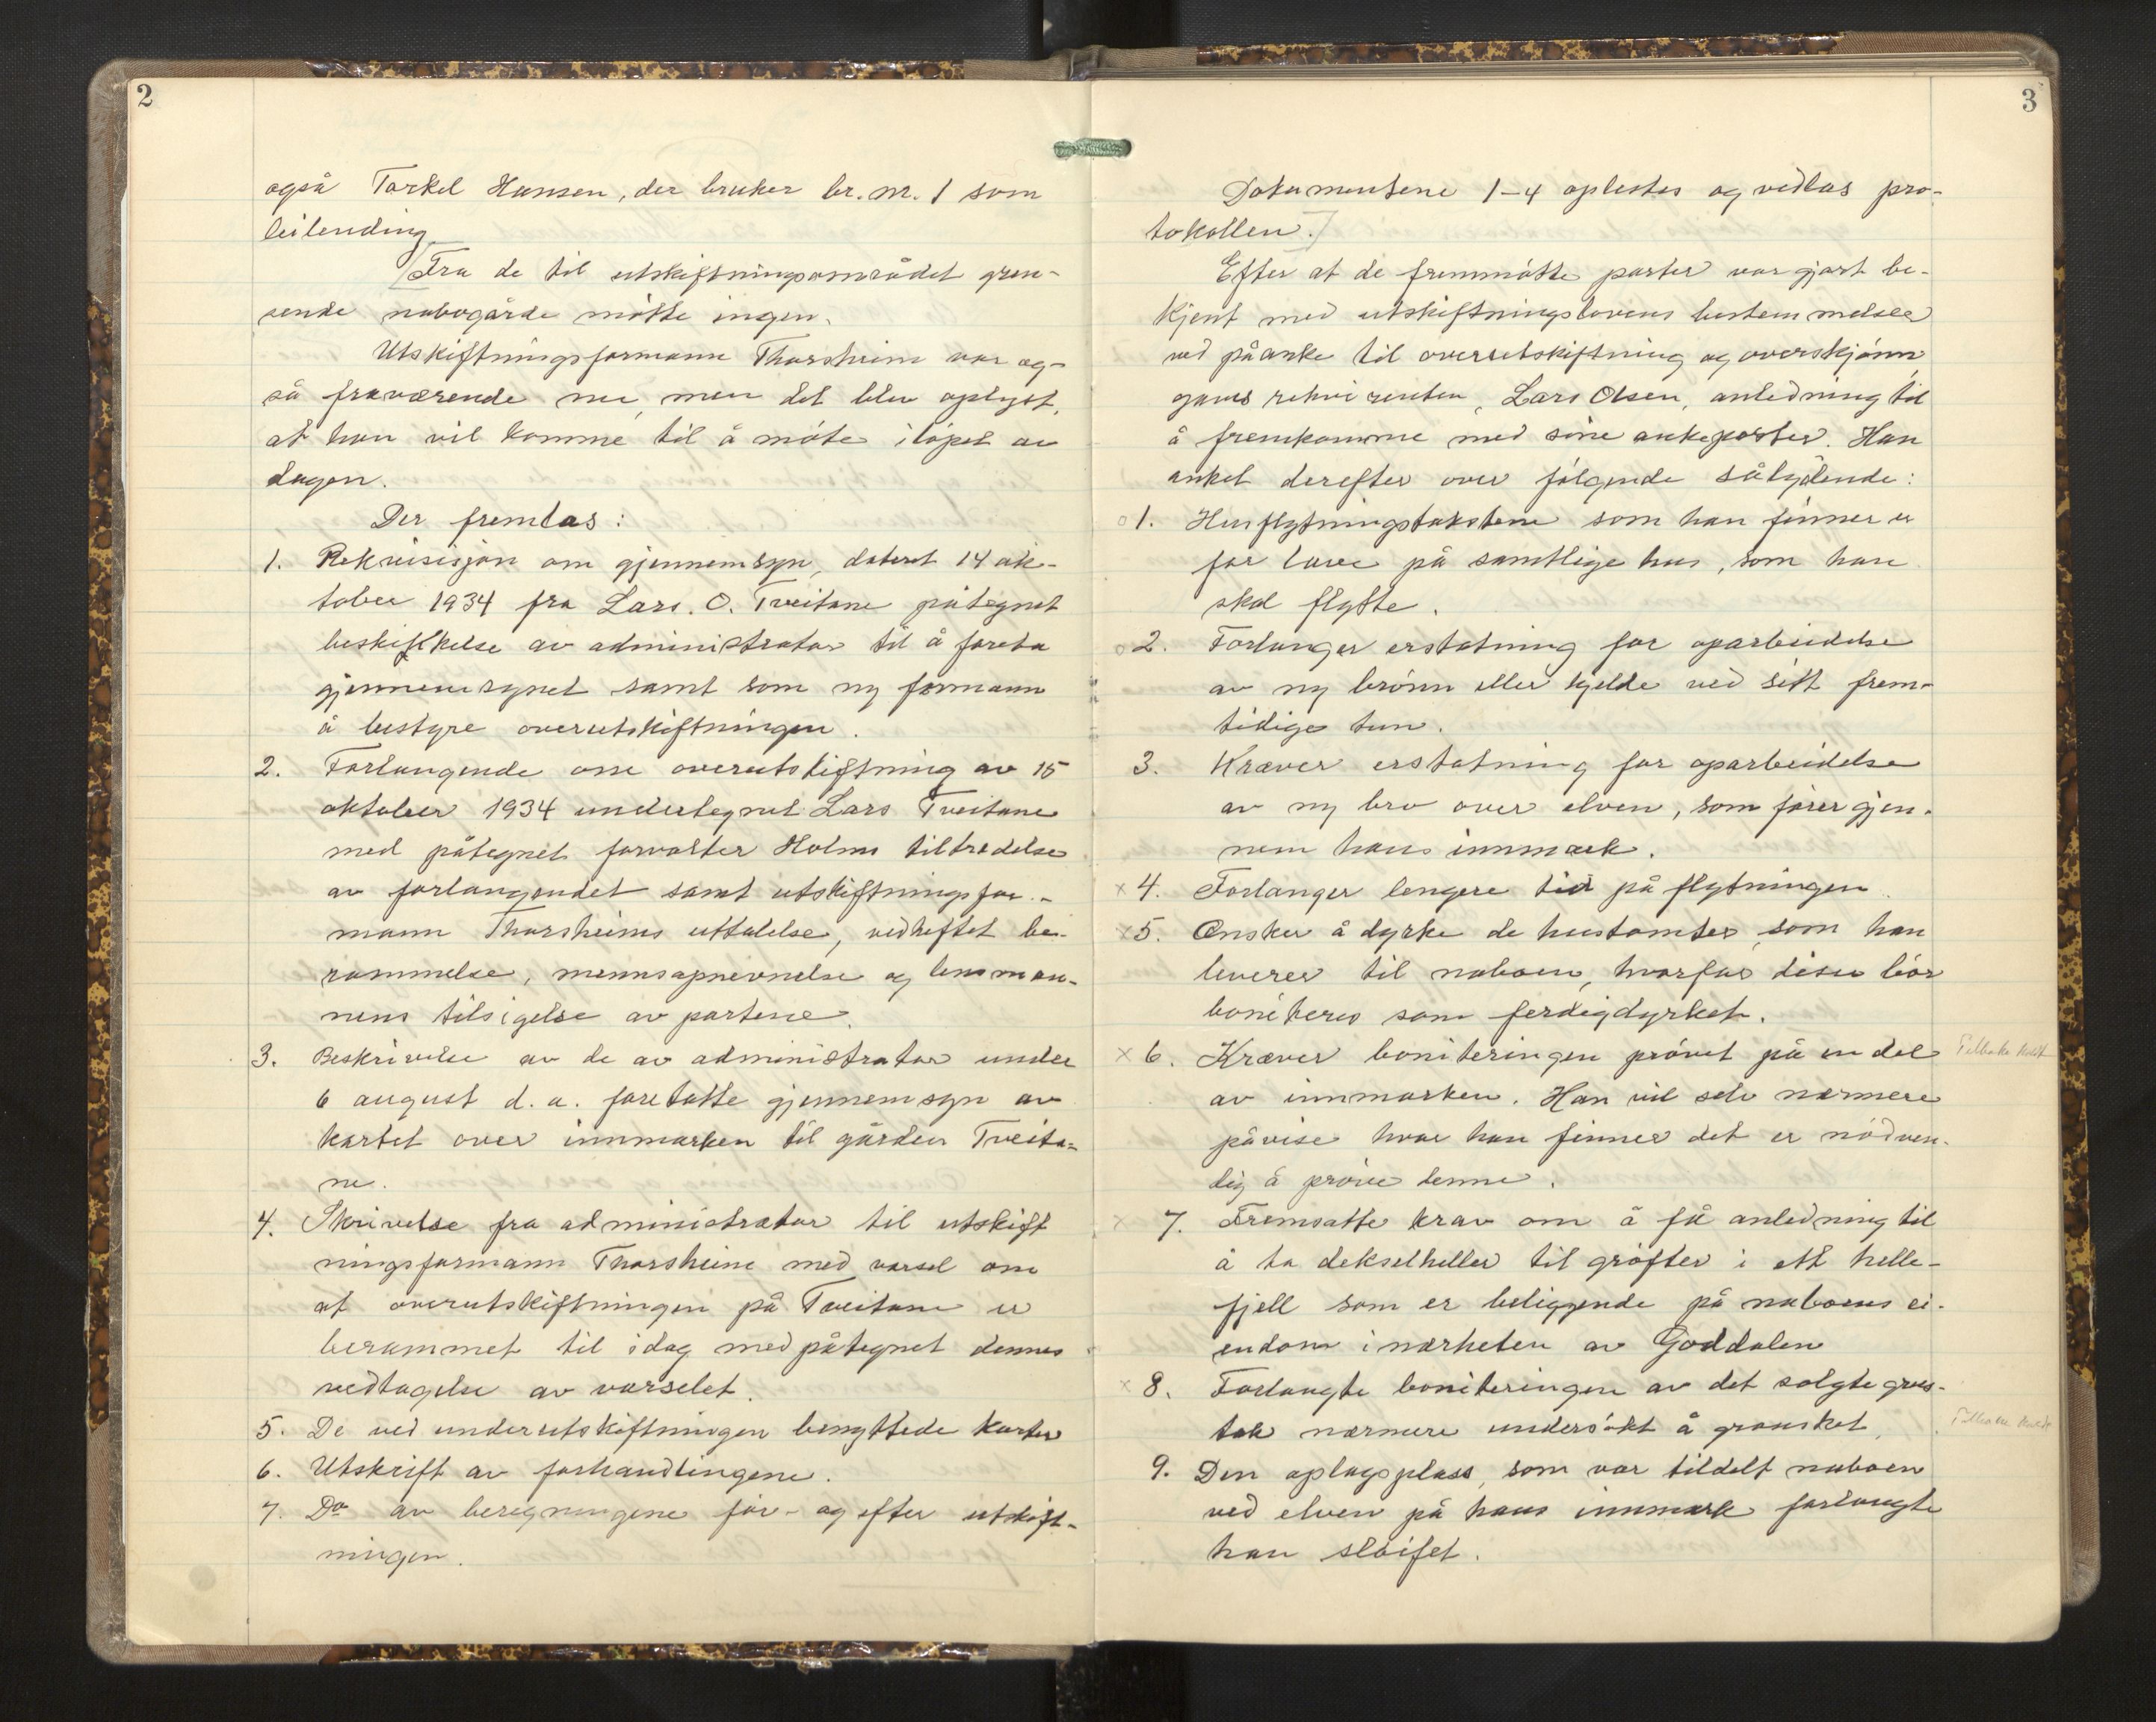 2
også Torkel Hansen, der bruker br. nr. 1 som
leilending
Fra de til utskiftningsområdet gren-
sende nabogårde møtte ingen.
Utskiftningsformann Thorsheim var og-
så fraværende nu, men det blev oplyst,
at han vil komme til å møte i løpet av
dagen.
Der fremlas:
1. Rekvisisjon om gjennemsyn, datert 14 ok-
tober 1934 fra Lars. O. Tveitane påtegnet
beskikkelse av administrator til å foreta
gjennemsynet samt som ny formann
å bestyre overutskiftningen.
2. Forlangende om overutskiftning av 15
oktober 1934 undertegnet Lars Tveitane
med påtegnet forvalter Holms tiltredelse
av forlangendet samt utskiftningsfor-
mann Thorsheims uttalelse, vedheftet be-
rammelse, mennsopnevnelse og lensman-
nens tilsigelse av partene.
3. Beskrivelse av de av administrator under
6 august d. a. foretatte gjennemsyn av
kartet over innmarken til gården Tveita-
ne.
4. Skrivelse fra administrator til utskift
ningsformann Thorsheim med varsel om
at overutskiftningen på Tveitane er
berammet til idag med påtegnet dennes
vedtagelse av varselet.
5. De ved underutskiftningen benyttede karter
6. Utskrift av forhandlingene.
7. Do av beregningene før- og efter utskift-
ningen.
3
Dokumentene 1-4 oplestes og vedlas pro-
tokollen.
Efter at de fremmøtte parter var gjort be-
kjent med utskiftningslovens bestemmelser
ved påanke til overutskiftning og overskjønn
gaves rekvirenten, Lars Olsen, anledning til
å fremkomme med sine ankeposter. Han
anket derefter over følgende sålydende:
o 1. Husflytningstakstene som han finner er
for lave på samtlige hus, som han
skal flytte.
o 2. Forlanger erstatning for oparbeidelse
av ny brønn eller kjelde ved sitt frem-
tidige tun.
3. Kræver erstatning for oparbeidelse
av ny bro over elven, som fører gjen-
nem hans innmark.
x 4. Forlanger lengere tid på flytningen.
x 5. Ønsker å dyrke de hustomter som han
leverer til naboen, hvorfor disse bør
boniteres som ferdigdyrket.
x 6. Kræver boniteringen prøvet på en del
av innmarken. Han vil selv nærmere
påvise hvor han finner det er nødven-
dig å prøve denne.
x 7. Fremsatte krav om å få anledning til
å ta dekselheller til grøfter i ett helle-
fjell som er beliggende på naboens ei-
endom i nærheten av Goddalen
x 8. Forlangte boniteringen av det solgte grus-
tak nærmere undersøkt å gransket.
9. Den oplagsplass, som var tildelt naboen
ved elven på hans innmark forlangte
han sløifet.
Tilbake
Tilbake